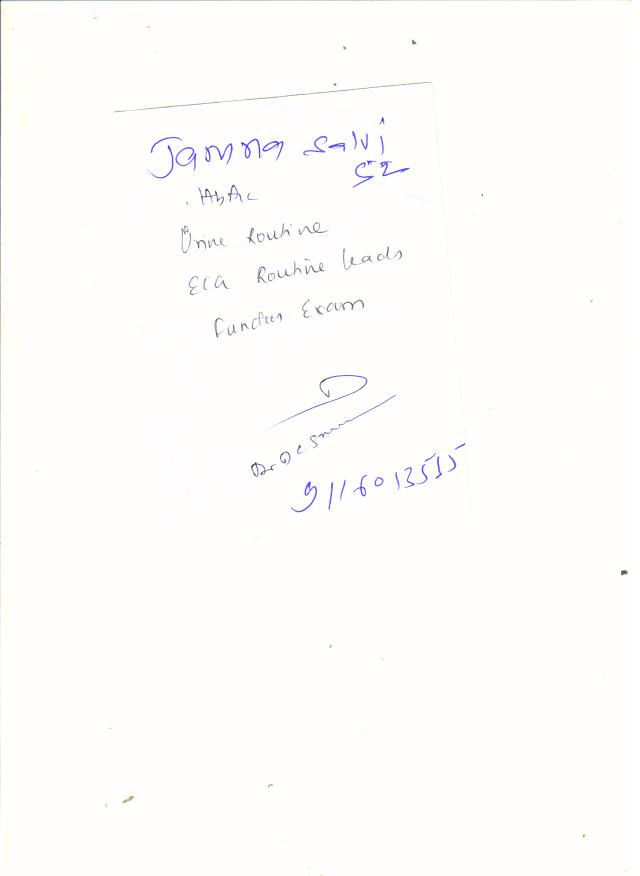 Jamna Salvi
52
HbA1c
Urine Routine
ECG Routine leads
Fundus Exam
Dr D C
9116013515